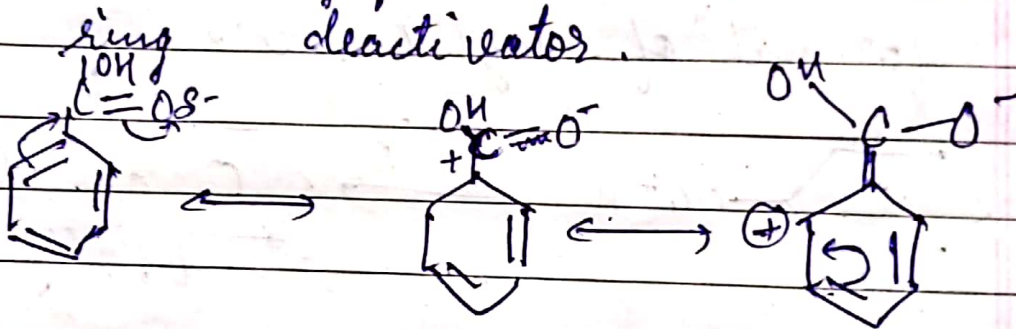 ring deactivator.
OH
C=Oδ-
OH
+C=O-
OH
C-O-
+